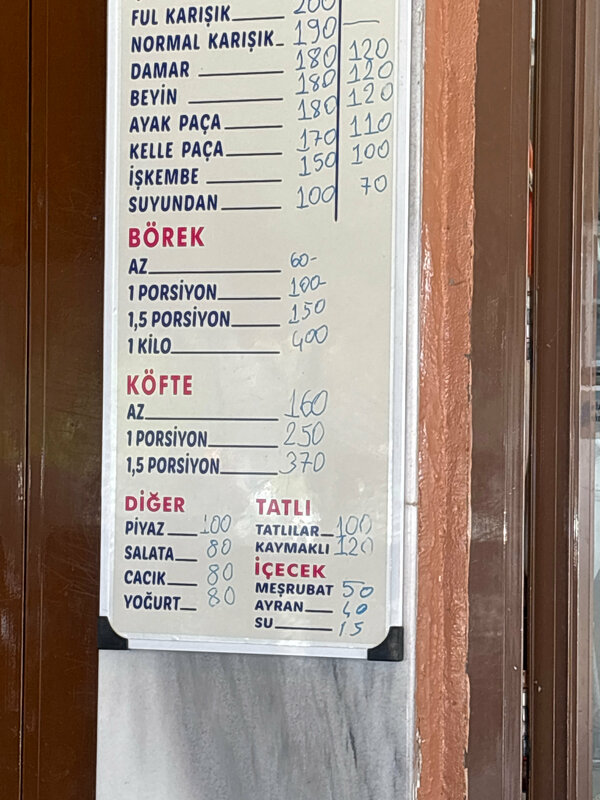 FUL KARIŞIK 200
NORMAL KARIŞIK 190 —
DAMAR 180 120
BEYİN 180 120
AYAK PAÇA 180 120
KELLE PAÇA 170 110
İŞKEMBE 150 100
SUYUNDAN 100 70
BÖREK
AZ 60-
1 PORSİYON 100-
1,5 PORSİYON 150
1 KİLO 400
KÖFTE
AZ 160
1 PORSİYON 250
1,5 PORSİYON 370
DİĞER
PİYAZ 100
SALATA 80
CACIK 80
YOĞURT 80
TATLI
TATLILAR 100
KAYMAKLI 120
İÇECEK
MEŞRUBAT 50
AYRAN 40
SU 15